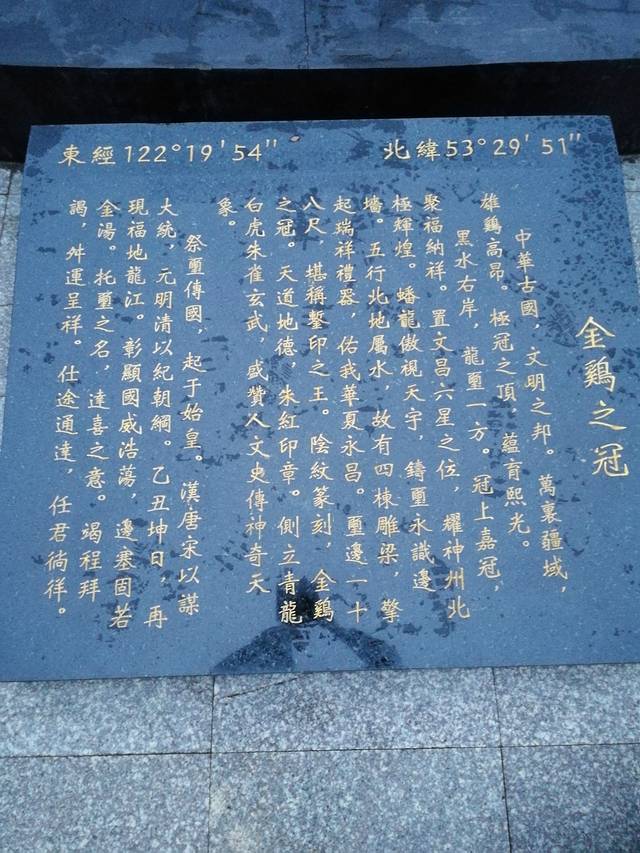 東經122°19′54″
北緯53°29′51″
金鷄之冠
中華古國，文明之邦。萬裏疆域，
雄鷄高昂。極冠之頂，蘊育熙光。
黑水右岸，龍璽一方。冠上嘉冠，
聚福納祥。置文昌六星之位，耀神州北
極輝煌。蟠龍傲視天宇，鑄璽永識邊
墻。五行北地屬水，故有四棟雕梁，擎
起瑞祥禮器，佑我華夏永昌。璽邊一十
八尺，堪稱鏨印之王。陰紋篆刻，金鷄
之冠。天道地德，朱紅印章。側立青龍
白虎朱雀玄武，感贊人文史傳神奇天
象。
祭璽傳國，起于始皇。漢唐宋以謀
大統，元明清以紀朝綱。乙丑坤日，再
現福地龍江。彰顯國威浩蕩，邊塞固若
金湯。托璽之名，達喜之意。竭程拜
謁，舛運呈祥。仕途通達，任君徜徉。